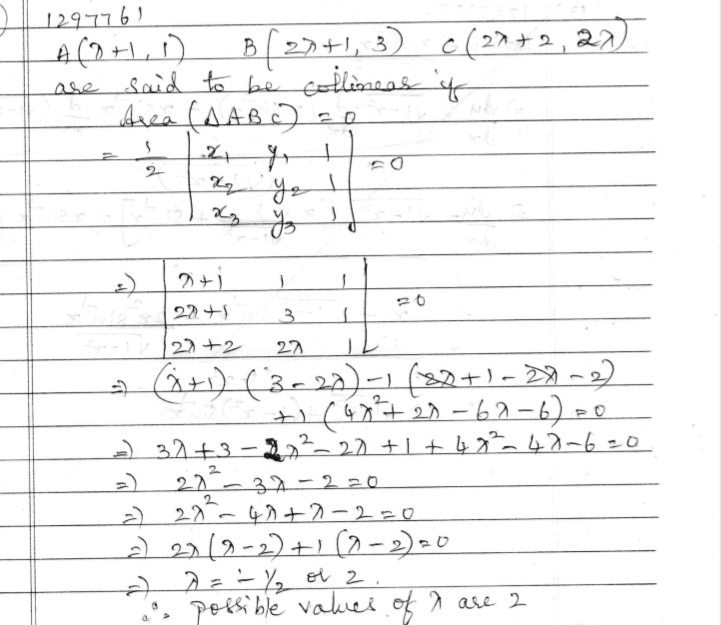 1297761
A(λ+1, 1) B(2λ+1, 3) C(2λ+2, 2λ)
are said to be collinear if
Area (ΔABC) = 0
= 1/2 | x₁ y₁ 1 | = 0
| x₂ y₂ 1 |
| x₃ y₃ 1 |
=) | λ+1 1 1 |
| 2λ+1 3 1 | = 0
| 2λ+2 2λ 1 |
=) (λ+1) (3-2λ) -1 (2λ+1-2λ-2)
+1 (4λ²+2λ-6λ-6) = 0
=) 3λ+3-2λ²-2λ+1+4λ²-4λ-6=0
=) 2λ²-3λ-2=0
=) 2λ²-4λ+λ-2=0
=) 2λ(λ-2)+1(λ-2)=0
=) λ = -1/2 or 2.
∴ possible values of λ are 2